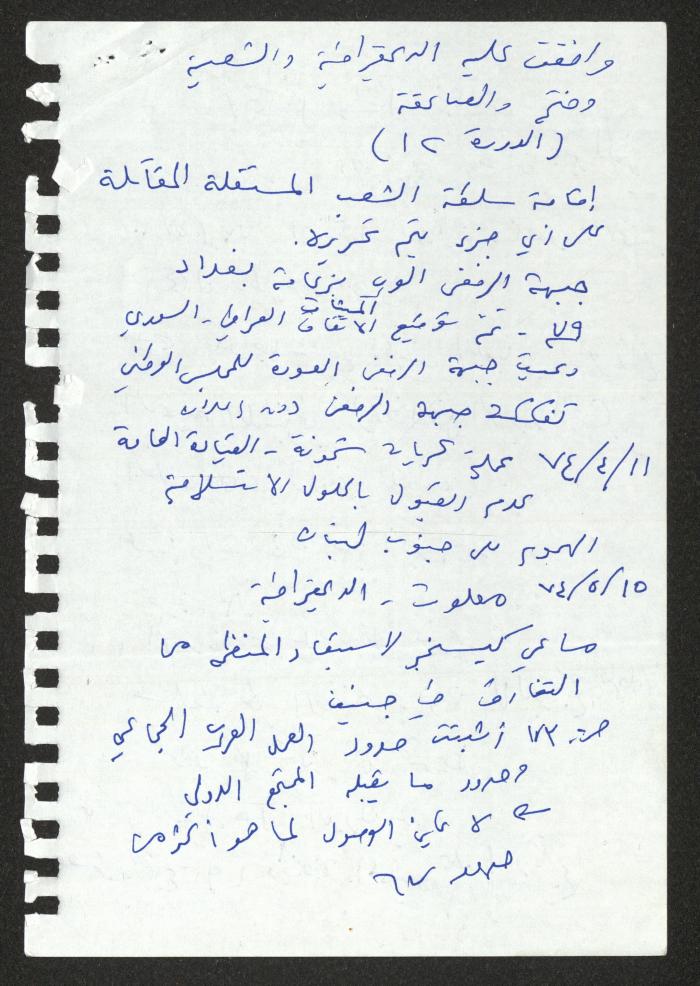 وافقت عليه الديمقراطية والشعبية
وفتح والصاعقة
(الدورة ١٢)
إقامة سلطة الشعب المستقلة المقاتلة
على أي جزء يتم تحريره.
جبهة الرفض العربي بزعامة بغداد
الميثاق
٧٩ - تمّ توقيع الاتفاق العراقي - السوري
وعادت جبهة الرفض العودة للمجلس الوطني
تفككت جبهة الرفض دون إعلان
٧٤/٤/١١ عملية كريات شمونة - القيادة العامة
عدم القبول بالحلول الاستسلامية
الهجوم على جنوب لبنان
٧٤/٥/١٥ معلوت - الديمقراطية
مساعي كيسنجر لاستبعاد المنظمة من
التفاوض في جنيف
حرب ٧٣ أثبتت حدود العمل العربي الجماعي
وحدود ما يقبله المجتمع الدولي
لا يمكن الوصول لما هو أكثر من
حدود ٦٧